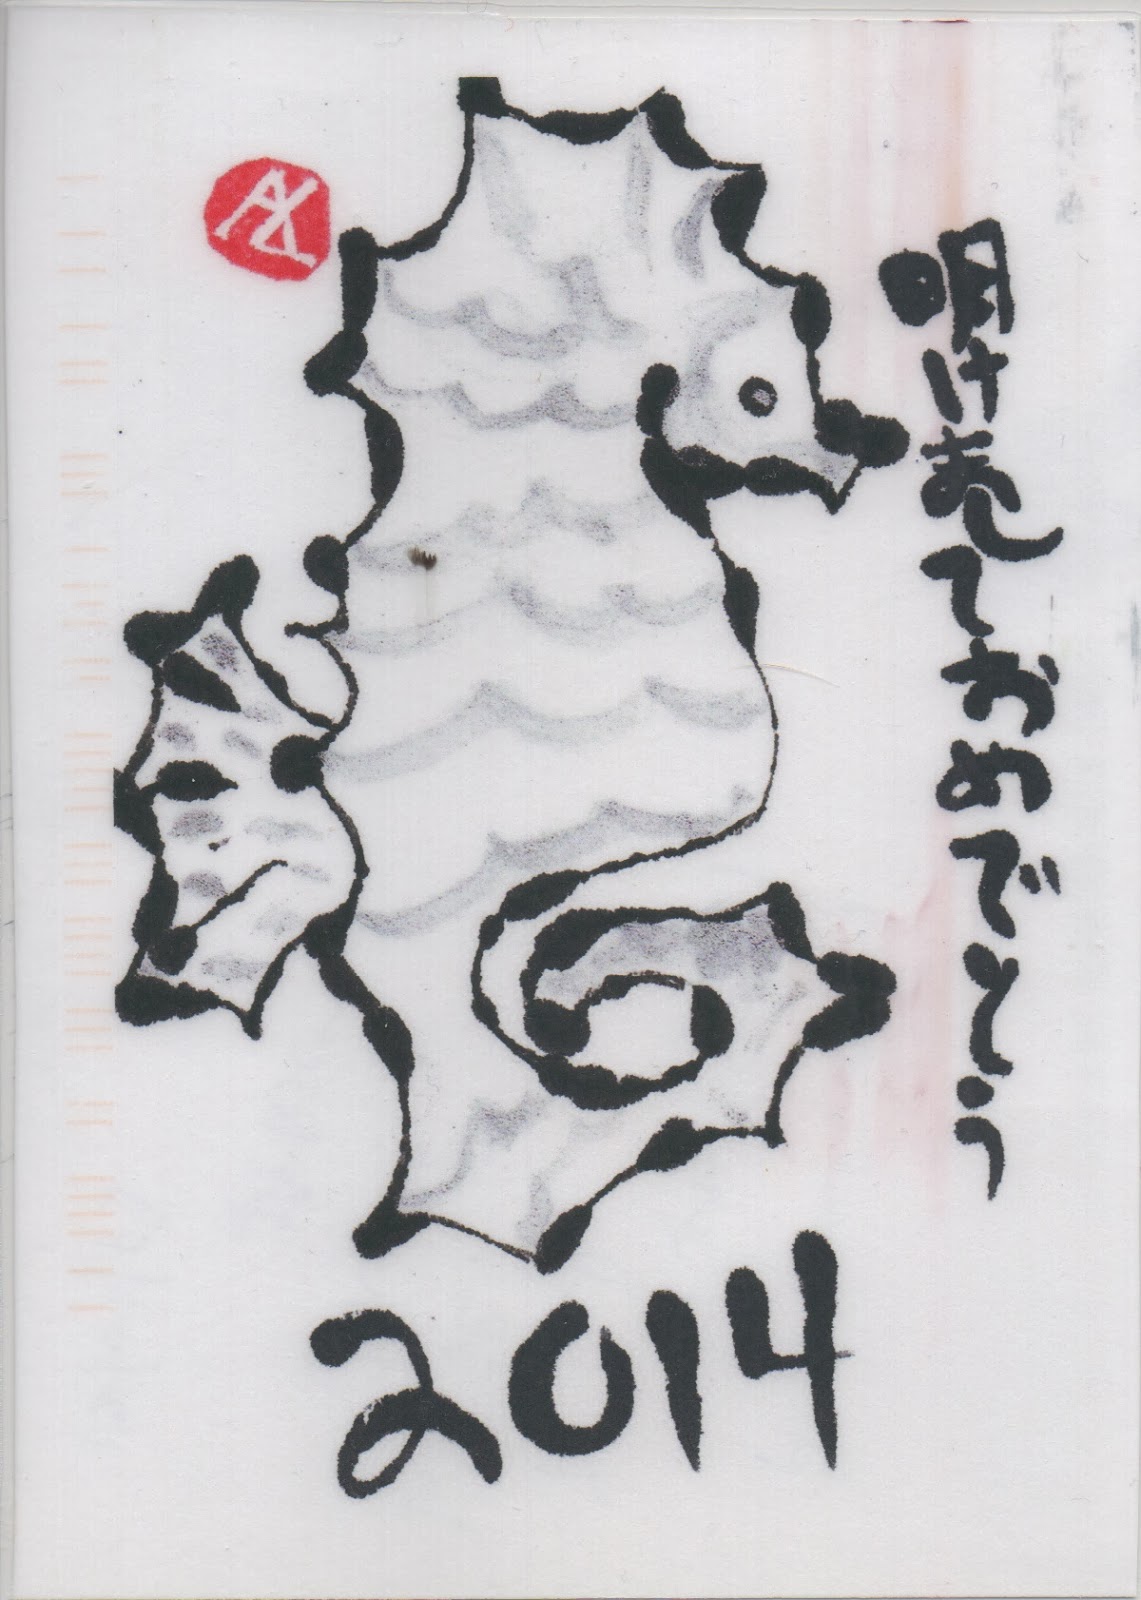 明けましておめでとう
2014